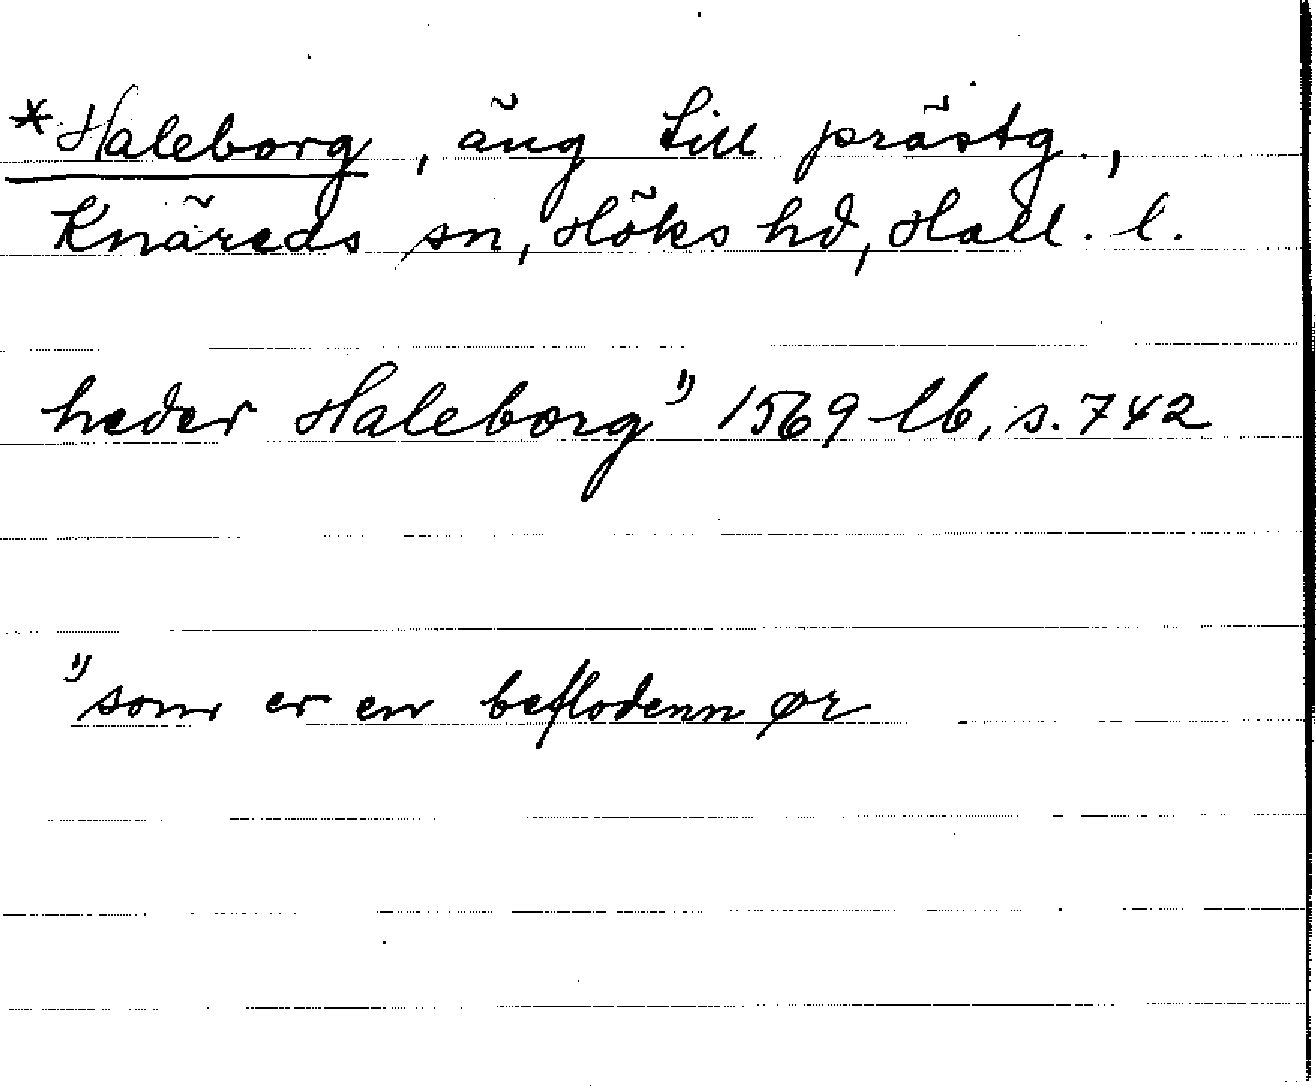 *Haleborg, äng till prästg.,
Knäreds sn, Höks hd, Hall. l.
heder Haleborg 1) 1569 lb, s. 742
1) som er en beflodenn ør